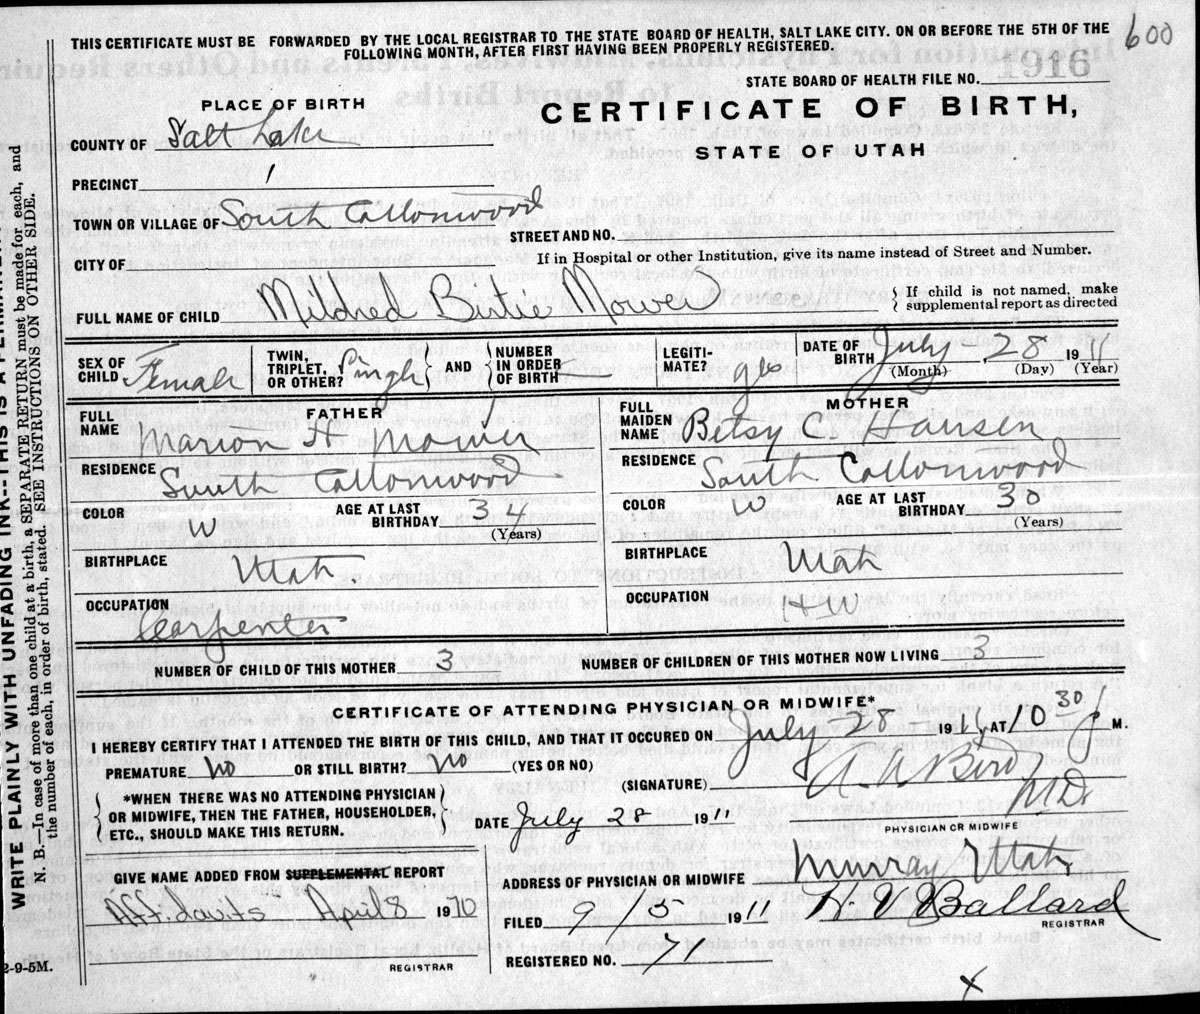 THIS CERTIFICATE MUST BE FORWARDED BY THE LOCAL REGISTRAR TO THE STATE BOARD OF HEALTH, SALT LAKE CITY. ON OR BEFORE THE 5TH OF THE
FOLLOWING MONTH, AFTER FIRST HAVING BEEN PROPERLY REGISTERED.
600
STATE BOARD OF HEALTH FILE NO. 1916
PLACE OF BIRTH
CERTIFICATE OF BIRTH,
STATE OF UTAH
COUNTY OF Salt Lake
PRECINCT 1
TOWN OR VILLAGE OF South Cottonwood
STREET AND NO.
CITY OF
If in Hospital or other Institution, give its name instead of Street and Number.
FULL NAME OF CHILD Mildred Birtie Mower { If child is not named, make
supplemental report as directed
SEX OF CHILD Female
TWIN, TRIPLET, OR OTHER? Singl } AND { NUMBER IN ORDER OF BIRTH
LEGITIMATE? yes
DATE OF BIRTH July 28 1911
(Month) (Day) (Year)
FATHER
FULL NAME Marion H Mower
RESIDENCE South Cottonwood
COLOR W AGE AT LAST BIRTHDAY 34
(Years)
BIRTHPLACE Utah
OCCUPATION Carpenter
MOTHER
FULL MAIDEN NAME Betsy C. Hansen
RESIDENCE South Cottonwood
COLOR W AGE AT LAST BIRTHDAY 30
(Years)
BIRTHPLACE Utah
OCCUPATION HW
NUMBER OF CHILD OF THIS MOTHER 3 NUMBER OF CHILDREN OF THIS MOTHER NOW LIVING 3
CERTIFICATE OF ATTENDING PHYSICIAN OR MIDWIFE*
I HEREBY CERTIFY THAT I ATTENDED THE BIRTH OF THIS CHILD, AND THAT IT OCCURED ON July 28 1911, AT 10 30 P M.
PREMATURE No OR STILL BIRTH? No (YES OR NO)
(SIGNATURE) Bird
M.D.
PHYSICIAN OR MIDWIFE
{ *WHEN THERE WAS NO ATTENDING PHYSICIAN
OR MIDWIFE, THEN THE FATHER, HOUSEHOLDER,
ETC., SHOULD MAKE THIS RETURN. }
DATE July 28 1911
GIVE NAME ADDED FROM SUPPLEMENTAL REPORT
Affidavits April 8 1970
REGISTRAR
ADDRESS OF PHYSICIAN OR MIDWIFE Murray Utah
FILED 9/5 1911 Ballard
REGISTRAR
REGISTERED NO. 71
X
2-9-5M.
WRITE PLAINLY WITH UNFADING INK--THIS IS A PERMANENT
N. B.--In case of more than one child at a birth, a SEPARATE RETURN must be made for each, and
the number of each, in order of birth, stated. SEE INSTRUCTIONS ON OTHER SIDE.